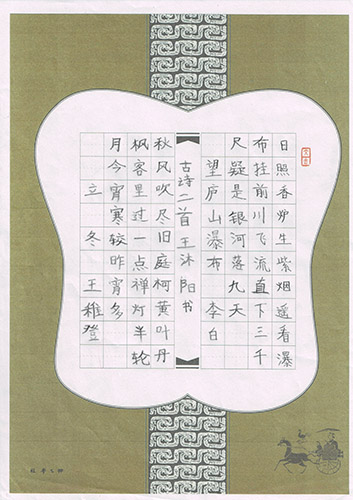 日照香炉生紫烟遥看瀑
布挂前川飞流直下三千
尺疑是银河落九天
望庐山瀑布 李白
古诗二首 王沐阳书
秋风吹尽旧庭柯黄叶丹
枫客里过一点禅灯半轮
月今宵寒较昨宵多
立冬 王稚登